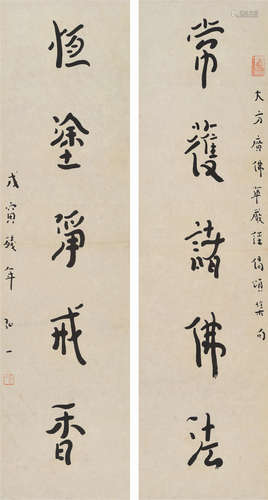 大方廣佛華嚴經偈頌集句
常獲諸佛法
恆塗淨戒香
戊寅殘年 弘一